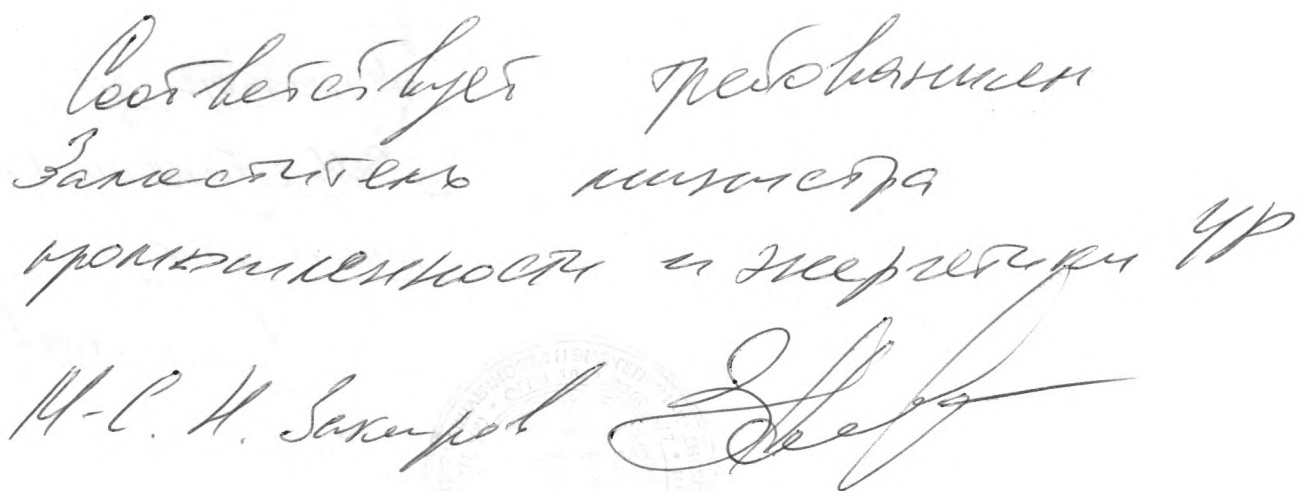 Соответствует требованиям
Заместитель министра
промышленности и энергетики ЧР
М-С. Н. Закиров